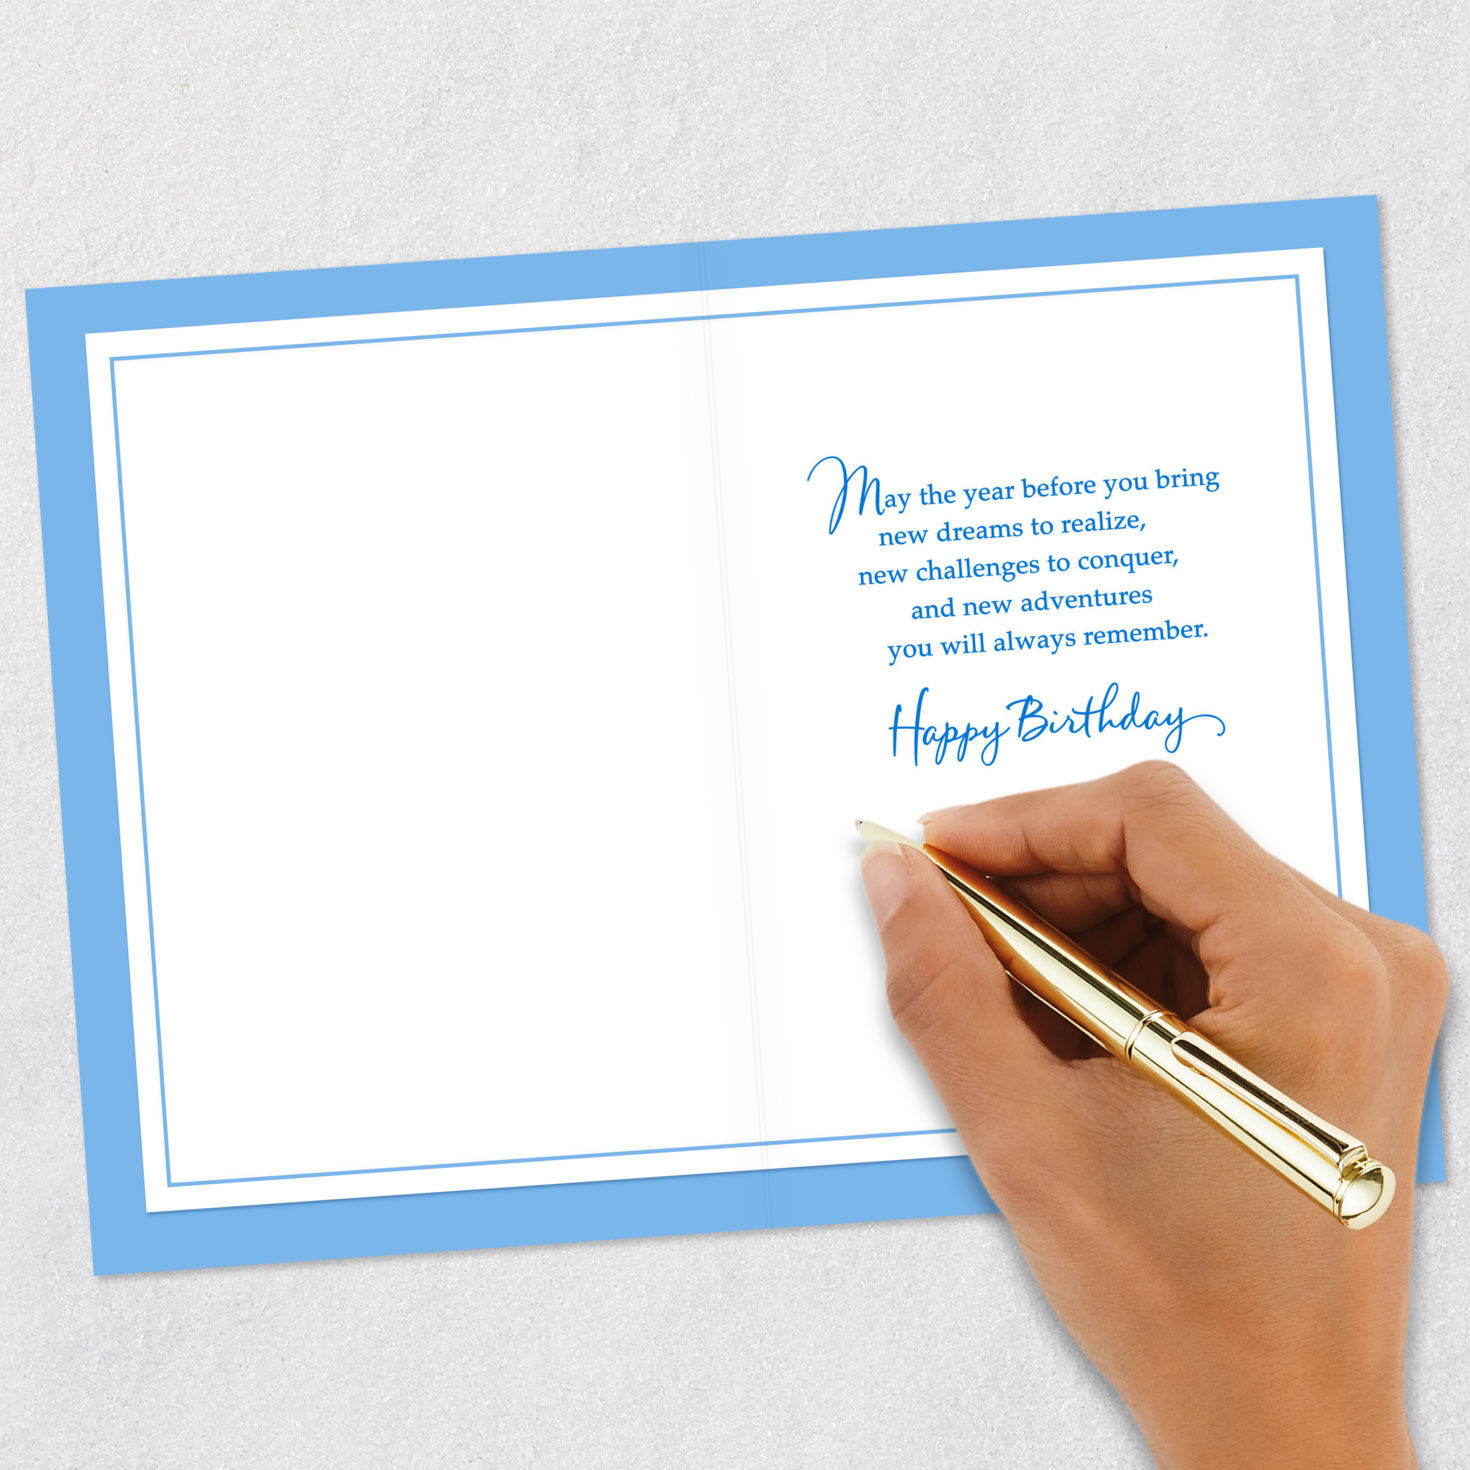 May the year before you bring
new dreams to realize,
new challenges to conquer,
and new adventures
you will always remember.
Happy Birthday